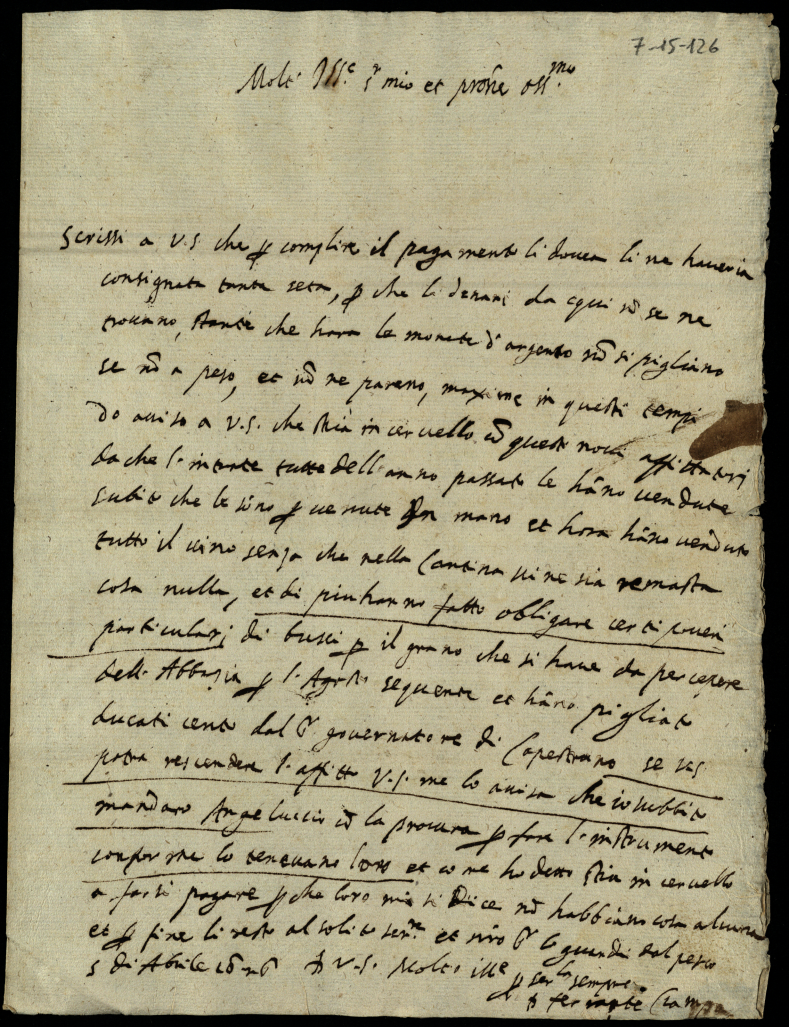 7-15-126
Molt' Ill.e S.r mio et prone oss.mo
Scrissi a V.S. che p complire il pagamento li dovea li ne haveria
consignata tanta seta, p che li denari da cqui nō se ne
trovano, stante che hora le monete d'argento nō si pigliano
se nō a peso, et nō ne pareno, maxime in questi tempi
Do aviso a V.S. che stia in cervello cō questi novi affittatori
da che l'intrate tutte dell'anno passato le hāno vendute
subito che le sōno p venute in mano et hora hāno vēduto
tutto il vino senza che nella Cantina vi ne sia remasta
cosa nulla, et di piu hanno fatto obligare certi poveri
particulari di bussi p il grano che si have da percepere
dell'Abbazia p l'Agosto sequente et hāno pigliato
ducati cento dal governatore di Capestrano se
potra rescendere l'affitto V.S. me lo avisa che io subbito
mandaro Angeluccio cō la procura p fare l'instrumento
conforme lo tenevano loro et come ho detto stia in cervello
a farsi pagare p che loro mi si Dice nō habbiano cosa alcuna
et p fine li resto al solito ser.re et nro S.r la guardi dal
5 di Abrile D V.S. Molto ill.e
p ser.la sempre